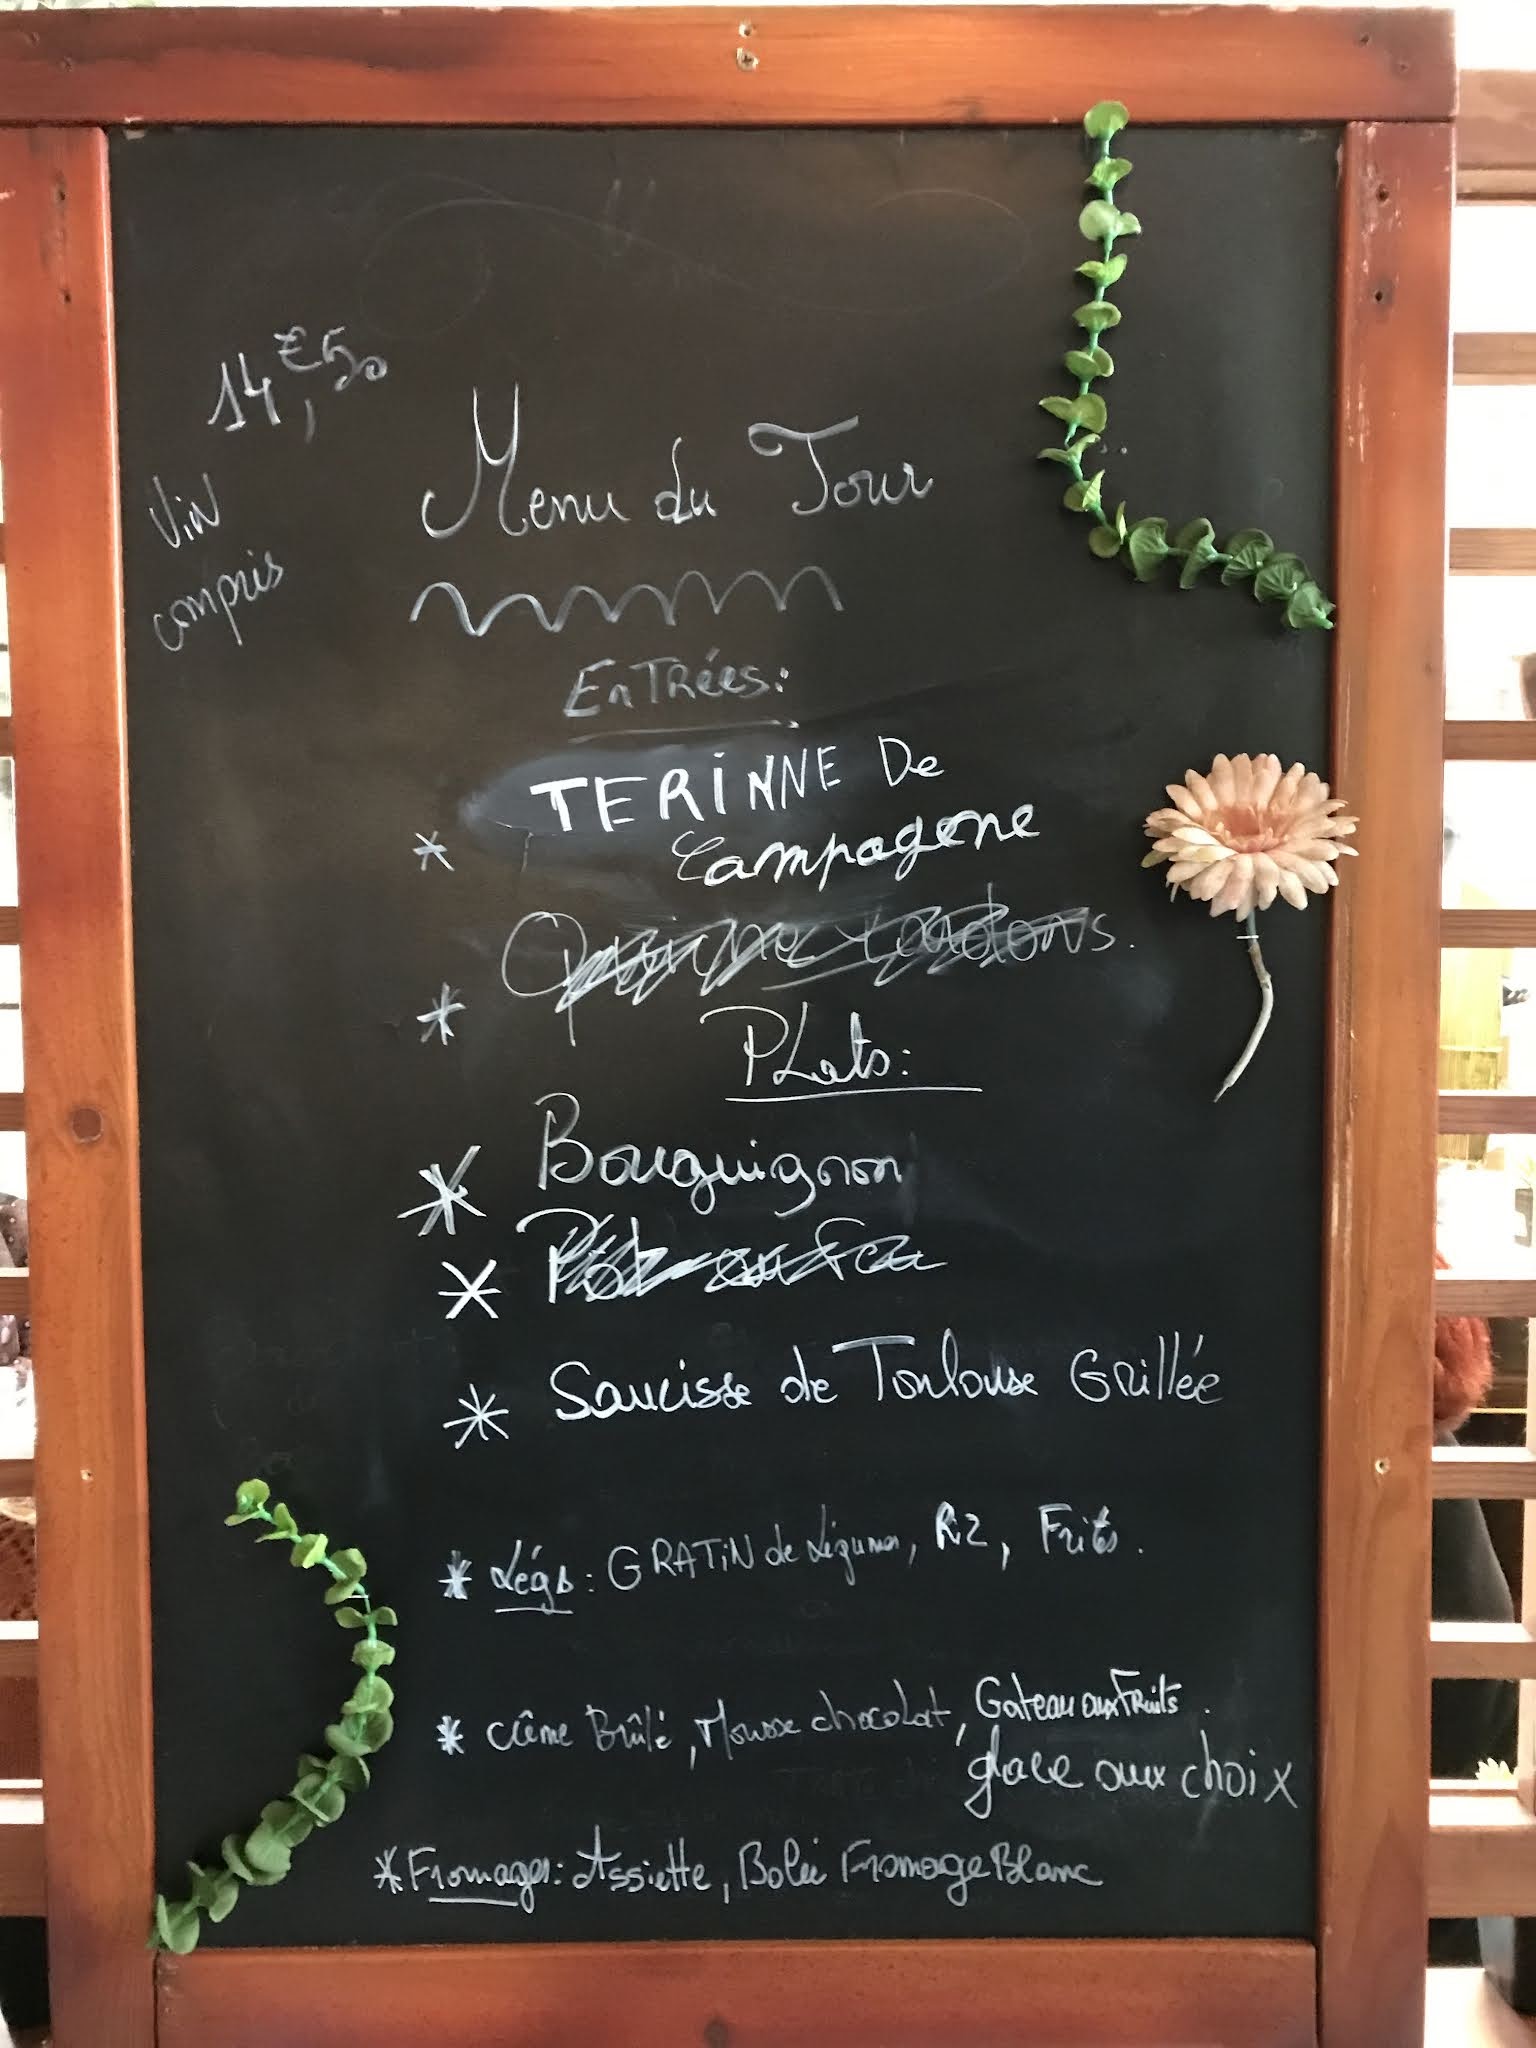 14,€50
Vin
compris
Menu du Jour
EnTRées:
* TERINNE De
Campagene
* Quiche lardons.
PLats:
* Bouguignon
* Pot au feu
* Saucisse de Toulouse Grillée
* Légs: GRATIN de Légumes, RiZ, Frites.
* Crême Brûlé, Mousse chocolat, Gateau aux Fruits.
glace aux choix
* Fromages: Assiette, Bolée Fromage Blanc